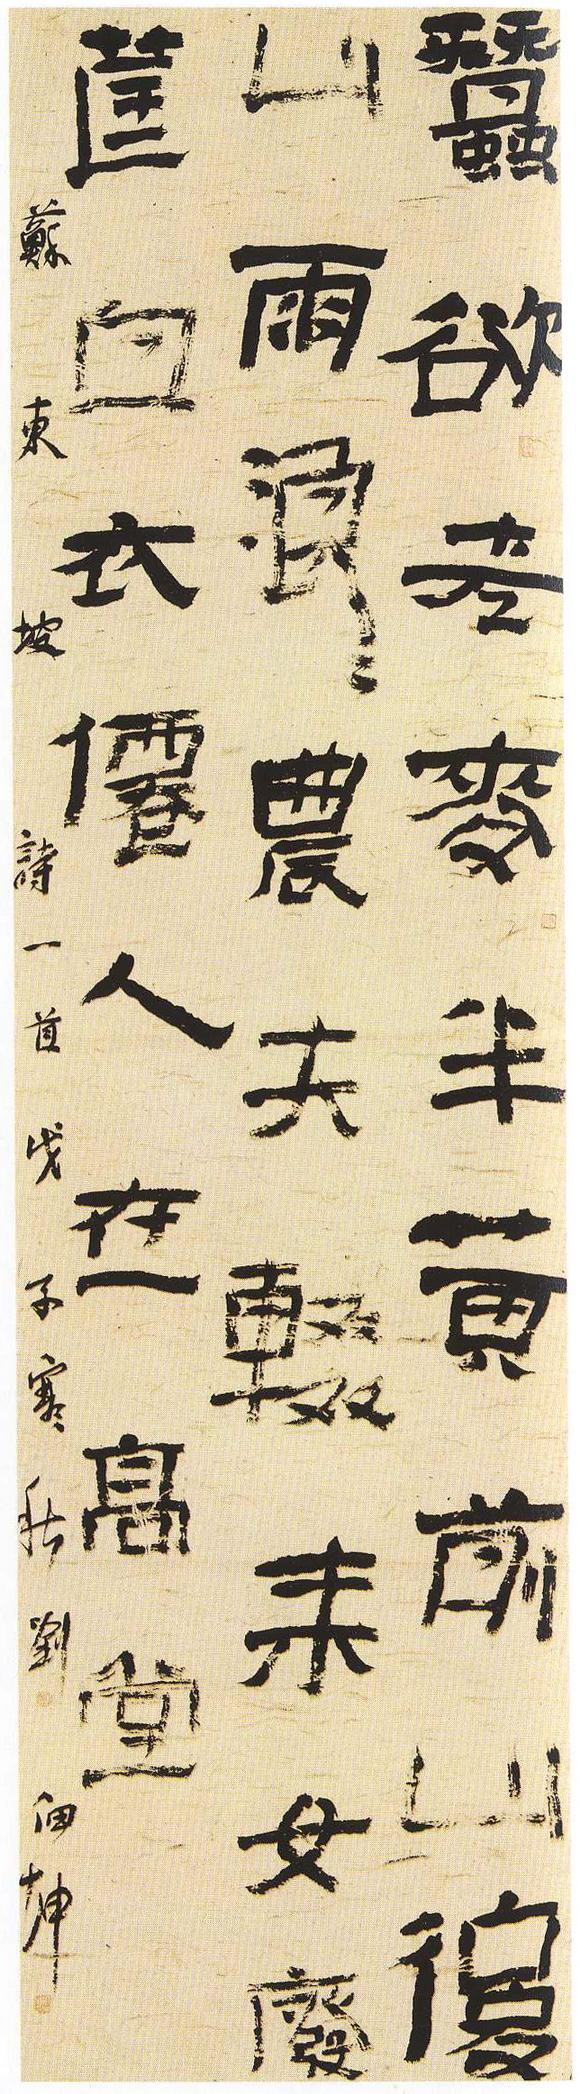 蠶欲老麥半黃前山復
山雨浪〻農夫輟耒女廢
筐白衣僊人在高堂
蘇東坡詩一首戊子寒秋劉坤